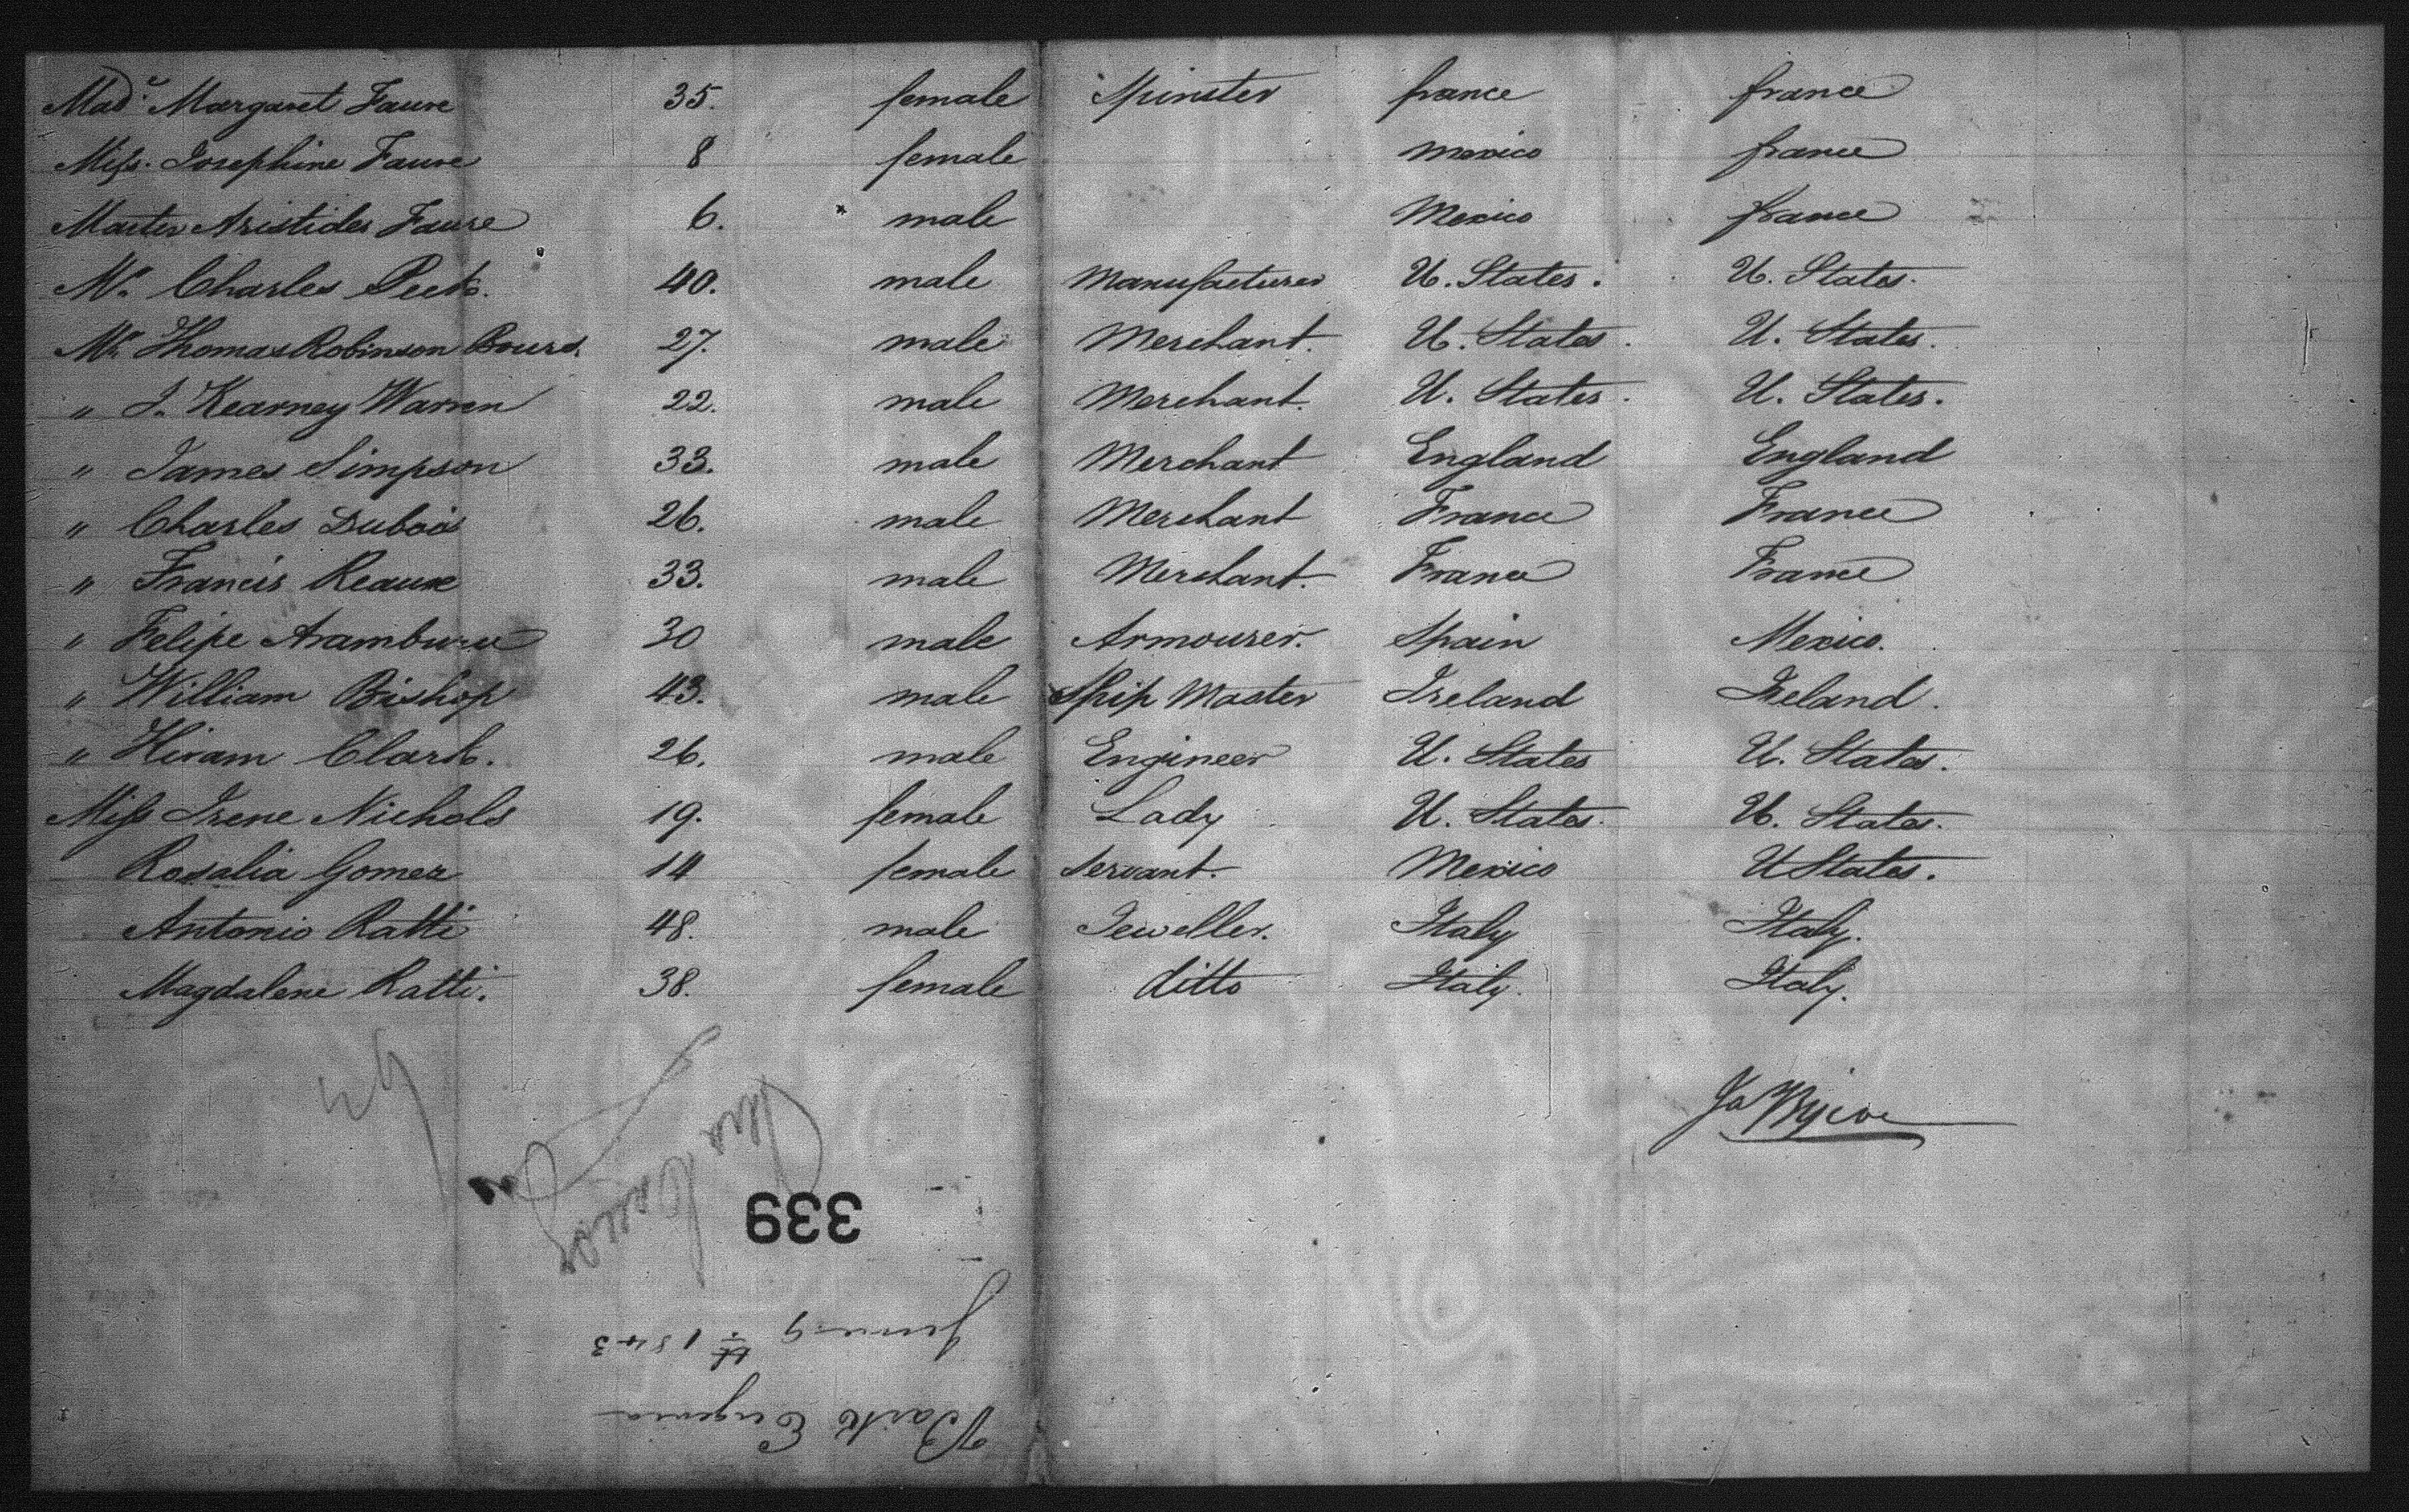 Made. Margaret Faure 35. female Spinster france france
Miss. Josephine Faure 8 female mexico france
Master Aristides Faure 6. male Mexico france
Mr. Charles Peck. 40. male Manufacturer U. States. U. States.
Mr. Thomas Robinson Bours. 27. male Merchant. U. States. U. States.
" J. Kearney Warren 22. male Merchant. U. States. U. States.
" James Simpson 33. male Merchant England England
" Charles Dubois 26. male Merchant France France
" Francis Reaux 33. male Merchant. France France
" Felipe Aramburu 30 male Armourer. Spain Mexico.
" William Bishop 43. male Ship Master Ireland Ireland.
" Hiram Clark. 26. male Engineer U. States U. States.
Miss Irene Nichols 19. female Lady U. States. U. States.
Rosalia Gomez 14 female Servant. Mexico U States.
Antonio Ratti 48. male Jeweller. Italy Italy.
Magdalene Ratti. 38. female ditto Italy. Italy.
Bark Eugenia
June 9 th 1843
339